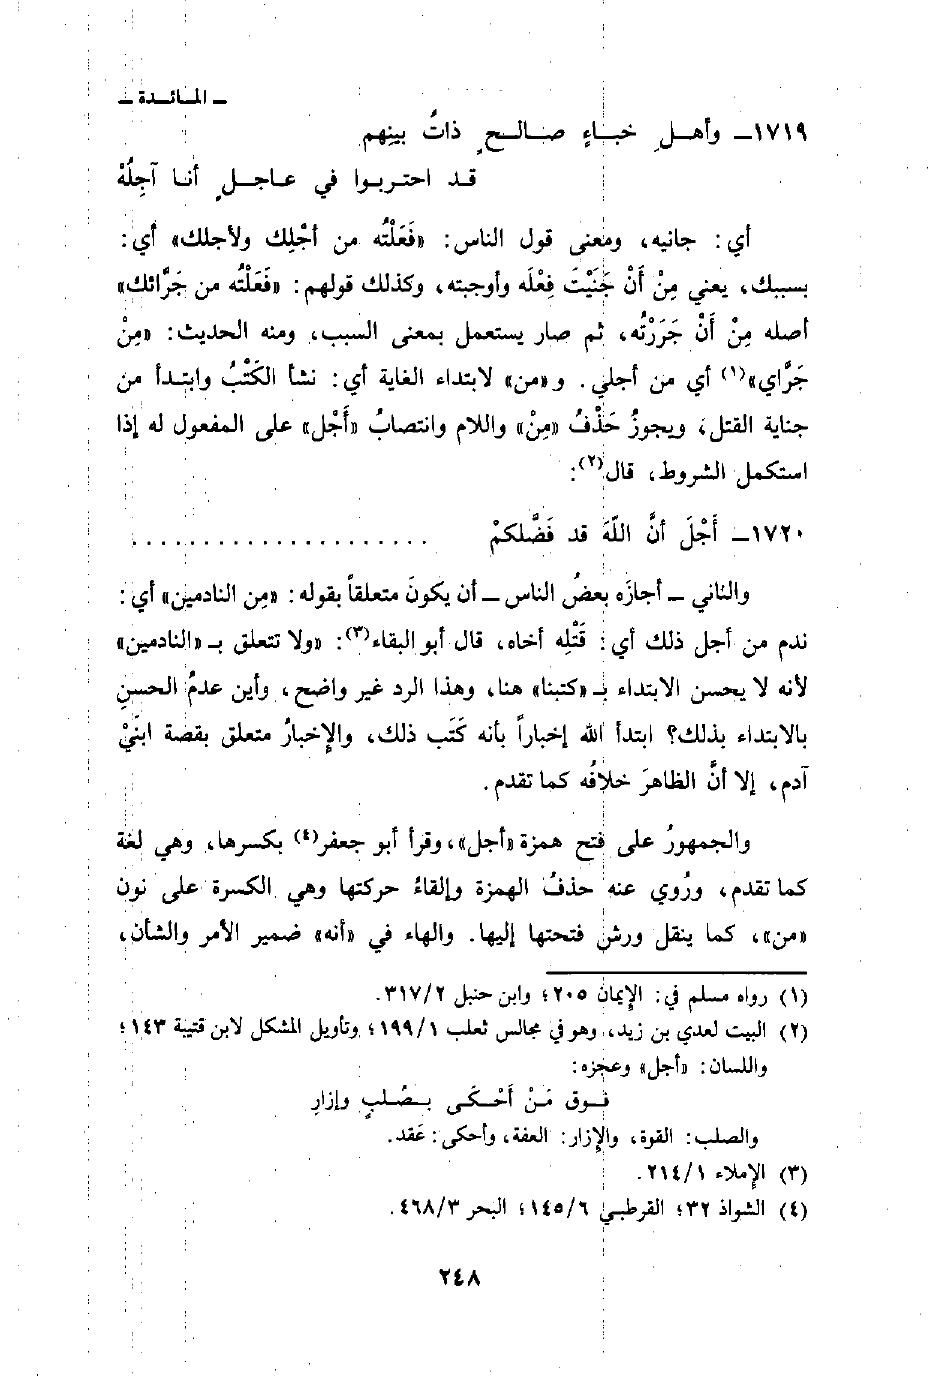 ـ المـائـدة ـ
١٧١٩ـ وأهـلِ خبـاءٍ صـالـحٍ ذاتُ بينِهم
قـد احتربـوا في عـاجـلٍ أنـا آجِلُهْ
أي: جانيه، ومعنى قول الناس: «فَعَلْتُه من أجْلِك ولأجلك» أي:
بسببك، يعني مِنْ أَنْ جَنَيْتَ فِعْلَه وأوجبته، وكذلك قولهم: «فَعَلْتُه من جَرَّائك»
أصله مِنْ أَنْ جَرَرْتُه، ثم صار يستعمل بمعنى السبب، ومنه الحديث: «مِنْ
جَرَّاي»(١) أي من أجلي. و«من» لابتداء الغاية أي: نشأ الكَتْبُ وابتدأ من
جناية القتل، ويجوزُ حَذْفُ «مِنْ» واللام وانتصابُ «أَجْل» على المفعول له إذا
استكمل الشروط، قال(٢):
١٧٢٠ـ أَجْلَ أنَّ اللَّهَ قد فَضَّلكمْ .....................
والثاني ـ أجازه بعضُ الناس ـ أن يكونَ متعلقاً بقوله: «مِن النادمين» أي:
ندم من أجل ذلك أي: قَتْلِه أخاه، قال أبو البقاء(٣): «ولا تتعلق بـ «النادمين»
لأنه لا يحسن الابتداء بـ «كتبنا» هنا، وهذا الرد غير واضح، وأين عدمُ الحسنِ
بالابتداء بذلك؟ ابتدأ الله إخباراً بأنه كَتَب ذلك، والإِخبارُ متعلق بقصة ابنَيْ
آدم، إلا أنَّ الظاهرَ خلافُه كما تقدم.
والجمهورُ على فتح همزة «أجل»، وقرأ أبو جعفر(٤) بكسرها، وهي لغة
كما تقدم، ورُوي عنه حذفُ الهمزة وإلقاءُ حركتها وهي الكسرة على نون
«من»، كما ينقل ورش فتحتها إليها. والهاء في «أنه» ضمير الأمر والشأن،
(١) رواه مسلم في: الإِيمان ٢٠٥؛ وابن حنبل ٣١٧/٢.
(٢) البيت لعدي بن زيد، وهو في مجالس ثعلب ١٩٩/١؛ وتأويل المشكل لابن قتيبة ١٤٣؛
واللسان: «أجل» وعجزه:
فـوق مَـنْ أَحْـكَـى بـصُـلبٍ وإزارِ
والصلب: القوة، والإِزار: العفة، وأحكى: عَقد.
(٣) الإِملاء ٢١٤/١.
(٤) الشواذ ٣٢؛ القرطبي ١٤٥/٦؛ البحر ٤٦٨/٣.
٢٤٨